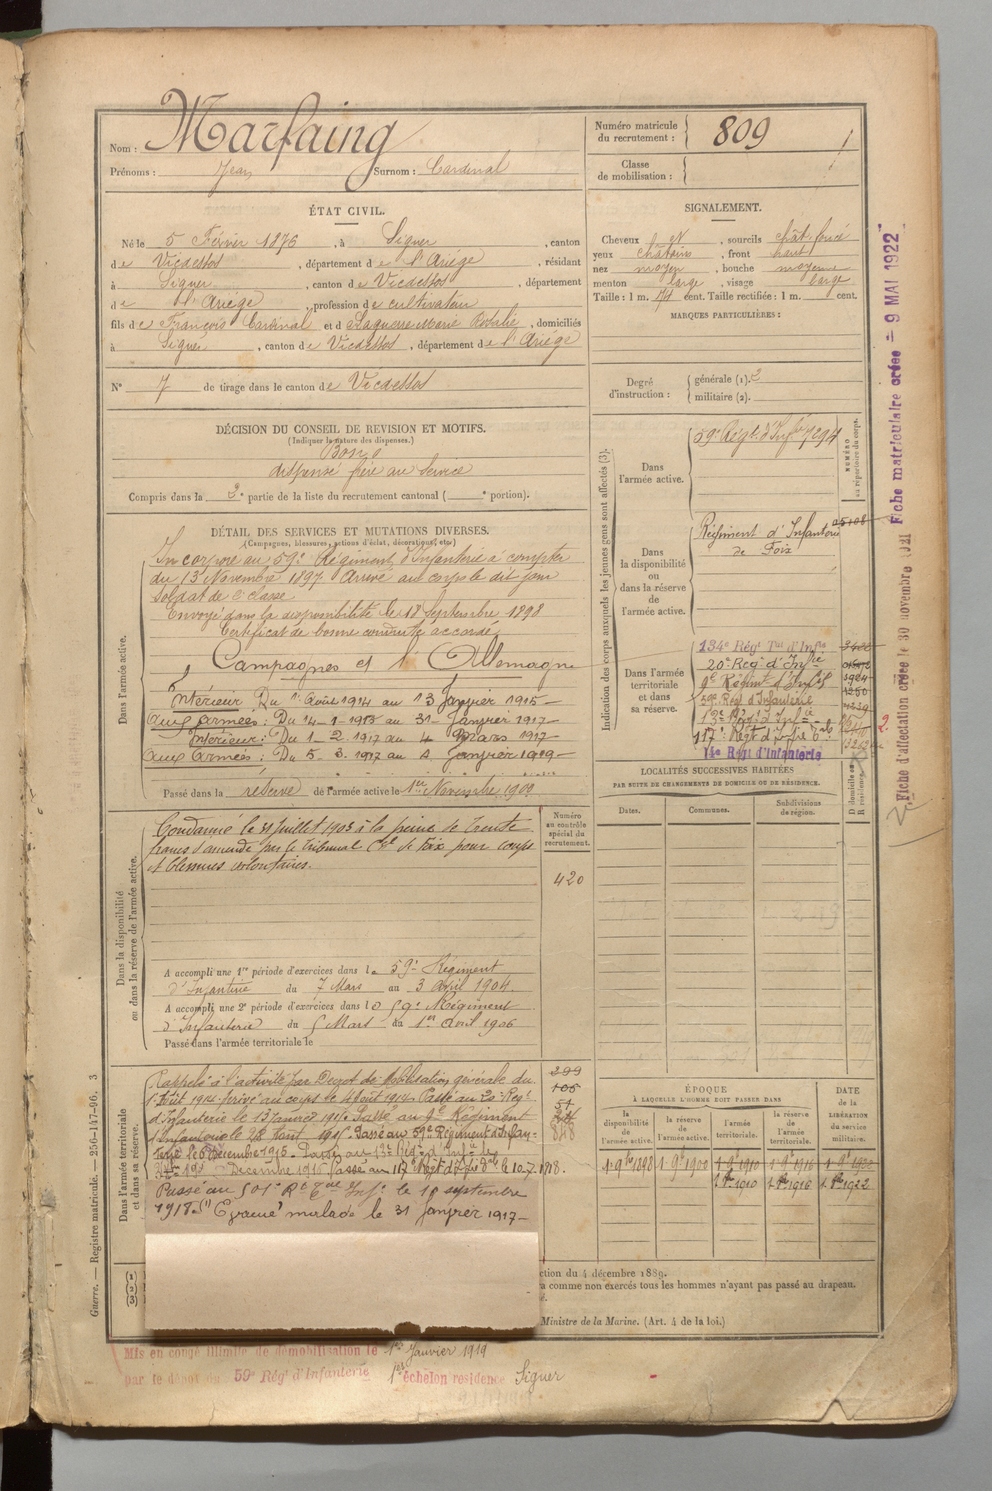 Nom : Marfaing
Prénoms : Jean Surnom : Cardinal
Numéro matricule du recrutement : 809
Classe de mobilisation :
ÉTAT CIVIL.
Né le 5 Février 1876, à Siguer, canton
de Vicdessos, département de l'Ariège, résidant
à Siguer, canton de Vicdessos, département
de l'Ariège, profession de cultivateur
fils de François Cardinal et de Laguerre Marie Rosalie, domiciliés
à Siguer, canton de Vicdessos, département de l'Ariège
N° 7 de tirage dans le canton de Vicdessos
SIGNALEMENT.
Cheveux et, sourcils chât. foncé
yeux châtains, front haut
nez moyen, bouche moyenne
menton large, visage large
Taille : 1 m. cent. Taille rectifiée : 1 m. cent.
MARQUES PARTICULIÈRES :
Degré d'instruction : générale (1). 2
militaire (2).
DÉCISION DU CONSEIL DE REVISION ET MOTIFS.
(Indiquer la nature des dispenses.)
Bon
dispensé frère au service
Compris dans la 2e partie de la liste du recrutement cantonal ( e portion).
DÉTAIL DES SERVICES ET MUTATIONS DIVERSES.
(Campagnes, blessures, actions d'éclat, décorations, etc.)
Dans l'armée active.
Incorporé au 59e Régiment d'Infanterie à compter
du 13 Novembre 1897. Arrivé au corps le dit jour
Soldat de 2e classe
Envoyé dans la disponibilité le 18 Septembre 1898
Certificat de bonne conduite accordé
Campagnes et l'Allemagne
Intérieur Du 1 Août 1914 au 13 Janvier 1915
Aux Armées : Du 14-1-1915 au 31 Janvier 1917
Intérieur : Du 1-2-1917 au 4 Mars 1917
Aux Armées : Du 5-3-1917 au 4 Janvier 1919
Passé dans la réserve de l'armée active le 1er Novembre 1909
Dans la disponibilité ou dans la réserve de l'armée active.
Condamné le 31 Juillet 1903 à la peine de trente
francs d'amende par le tribunal Cel de Foix pour coups
et blessures volontaires.
Numéro au contrôle spécial du recrutement.
420
A accompli une 1re période d'exercices dans le 59e Régiment
d'Infanterie du 7 Mars au 3 Avril 1904
A accompli une 2e période d'exercices dans le 59e Régiment
d'Infanterie du 5 Mars au 1er Avril 1906
Passé dans l'armée territoriale le
Dans l'armée territoriale et dans sa réserve.
Rappelé à l'activité par Décret de Mobilisation générale du
1er Août 1914 arrivé au corps le 4 Août 1914. Passé au 20e Régt
d'Infanterie le 13 Janvier 1915. Passé au 9e Régiment
d'Infanterie le 28 Août 1915. Passé au 59e Régiment d'Infan-
terie le 6 Décembre 1916. Passé au 13e Régt d'Infie le
Décembre 1916 Passé au 117e Régt d'Infie le 10-7-1918.
Passé au 501e Inf. le 18 septembre
1918. Evacué malade le 31 Janvier 1917
Indication des corps auxquels les jeunes gens sont affectés (3).
Dans l'armée active.
59e Régt d'Infie 7294
NUMÉRO au répertoire du corps.
Dans la disponibilité ou dans la réserve de l'armée active.
Régiment d'Infanterie
de Foix
Dans l'armée territoriale et dans sa réserve.
134e Régt Tal d'Infie
20e Régt d'Infie
9e Régiment d'Infie
59e Régt d'Infanterie
13e Régt d'Infie
117e Régt d'Infie
14e Régt d'Infanterie
LOCALITÉS SUCCESSIVES HABITÉES
PAR SUITE DE CHANGEMENTS DE DOMICILE OU DE RÉSIDENCE.
Dates. Communes. Subdivisions de région.
D domicile ou R résidence.
ÉPOQUE
À LAQUELLE L'HOMME DOIT PASSER DANS
la disponibilité de l'armée active.
la réserve de l'armée active.
l'armée territoriale.
la réserve de l'armée territoriale.
DATE de la LIBÉRATION du service militaire.
ction du 4 décembre 1889.
a comme non exercés tous les hommes n'ayant pas passé au drapeau.
Ministre de la Marine. (Art. 4 de la loi.)
Mis en congé illimité de démobilisation le 1er Janvier 1919
par le dépôt du 59e Régt d'Infanterie 1er échelon résidence Siguer
Guerre. — Registre matricule. — 256-147-96. 3
Fiche matriculaire créée — 9 MAI 1922
Fiche d'affectation créée le 30 novembre 1921